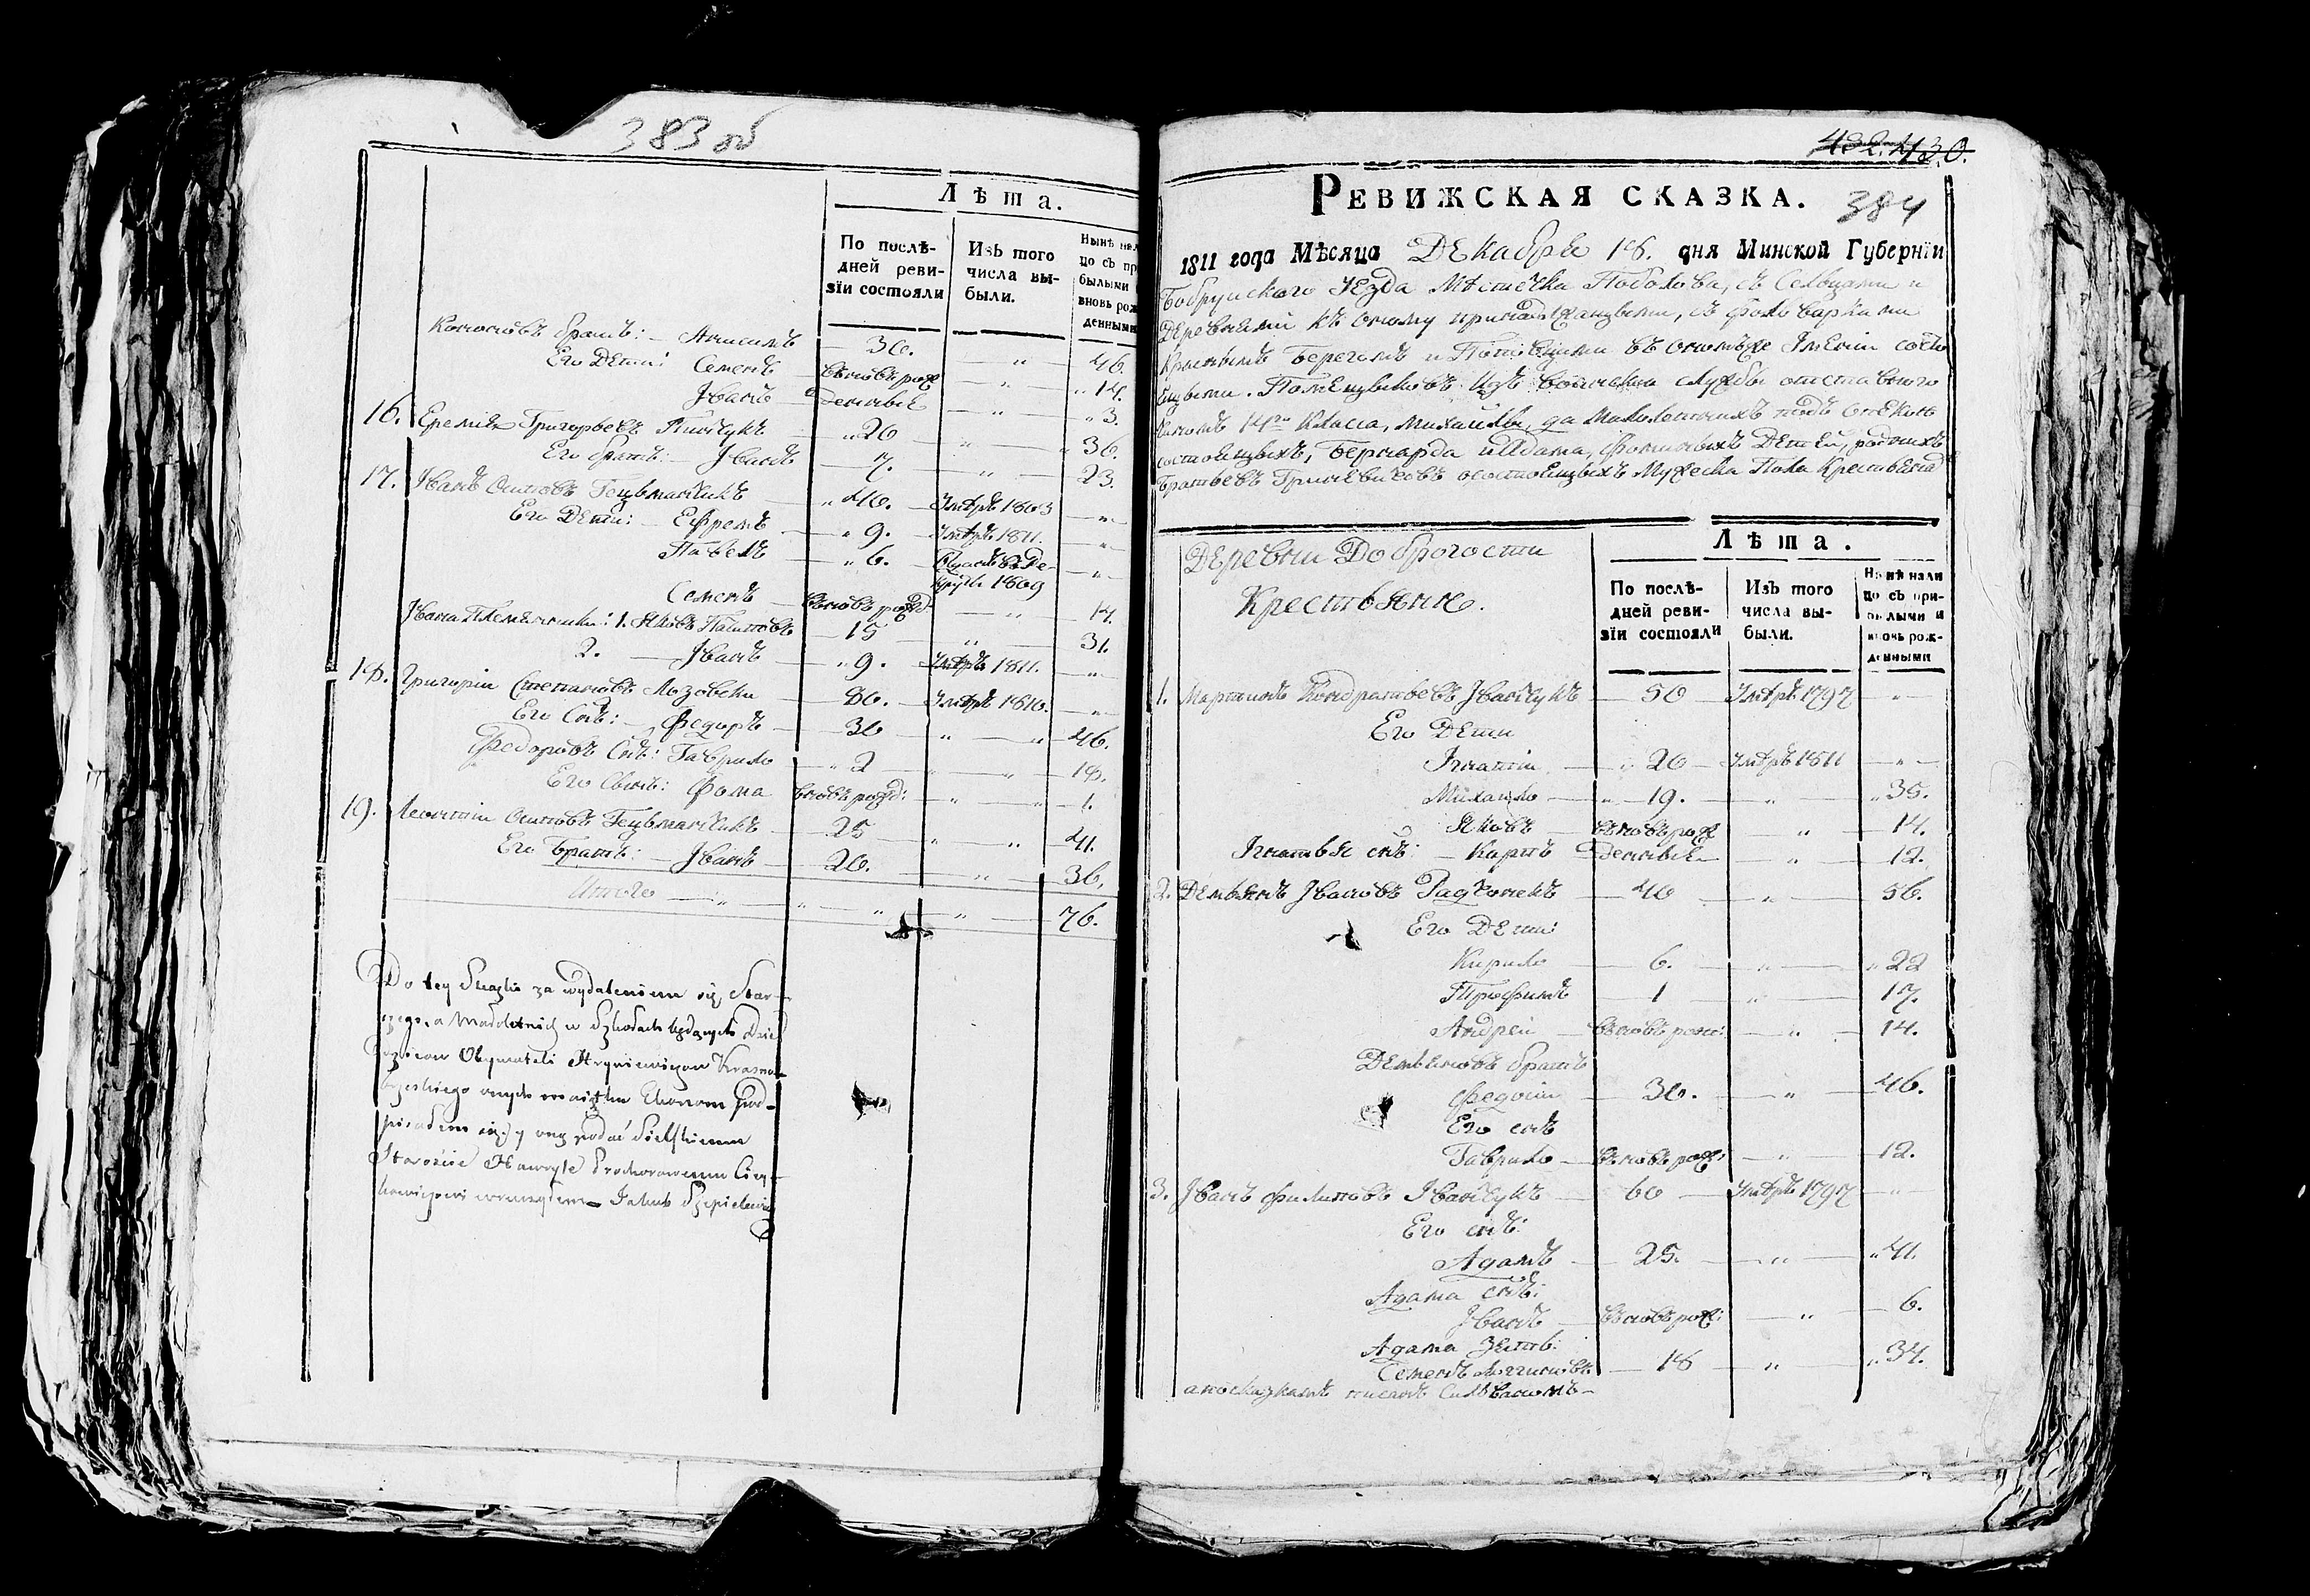 383 об
Лѣта.
По послѣ-
дней реви-
зіи состояли
Изъ того
числа вы-
были.
Нынѣ нал
цо съ пр
былыми
вновь рож
денными
Кононовъ братъ: Анисимъ — 30. — " — 46.
Его Дети: Семенъ — вновь рож — " — " 14.
Іванъ — денные — " — " 3.
16. Еремія Григорьевъ — " 20 — " — " 36.
Его братъ: Іванъ — 7. — " — 23.
17. Іванъ Осиповъ Гецманчикъ — " 40. — Умѣръ 1803 — " —
Его Дети: Ефремъ — " 9. — Умѣръ 1811. — " —
Павелъ — " 6. — Отданъ въ Ре-
круты 1809 — " —
Семенъ — вновь рожд — " — 14.
Івана Племянники: 1. Яковъ — 15 — " — 31.
2. — Іванъ — " 9. — Умѣръ 1811. — " —
18. Григорій Степановъ Лозовски — 80. — Умѣръ 1810. — " —
Его Сынъ: Федоръ — 30 — " — " — 46.
Федоровъ Сынъ: Гаврило — " 2 — " — 18.
Его Сынъ: Фома — вновь рожд: — " — " — 1.
19. Леонтій Осиповъ Гецманчикъ — 25 — " — " 41.
Его Братъ: — Іванъ — 20. — " — 36.
Итого — " — " — " — " — 76.
Do tey Skazki za wydaleniem się Star-
szego, a Małoletnich w Szkołach będących Dzie-
dziców Obywateli Hryniewiczow Krasno-
brzeskiego onych maiątku Ekonom Pod-
pisałem się, y onę podać Sielskiemu
Staroście Hawryle Prochorowemu
Jakub
432. 430.
Ревижская сказка.
384
1811 года Мѣсяца Декабря 18. дня Минской Губерніи
Бобруйскаго Уезда Местечка Поболова, съ Селцами и
Деревнями къ оному принадлежащыми, съ фольварками
Краснымъ Берегомъ и въ ономже Имении состо
ящыми. Помещыковъ Изъ воинской службы отставного
чиномъ 14го Класса, Михайлы, да Малолетнихъ подъ опекою
состоящыхъ, Бернарда и Адама, Фоминыхъ Детей, родныхъ
Братьевъ Гриневичовъ осостоящыхъ Мужеска Пола Крестьянъ
Деревни Доброгости
Крестьяне.
Лѣта.
По послѣ-
дней реви-
зіи состояли
Изъ того
числа вы-
были.
Нынѣ нали
цо съ при-
былыми и
вновь рож-
денными
1. Мартинъ Кондратьевъ Іванчукъ — 50 — Умѣръ 1797 — " —
Его Дети
Ігнатій — " 20 — Умѣръ 1811 — " —
Михаило — " 19. — " — " 35.
Яковъ — вновь рож — " — 14.
Ігнатья сынъ: — Карпъ — денные — " — 12.
2. Демьянъ Івановъ — 40 — " — 56.
Его Дети:
Кирило — 6. — " — " 22
Трофимъ — 1 — " — 17.
Андрей — вновь рожд: — " — 14.
Демьяновъ братъ
Федосій — 30. — " — 46.
Его сынъ
Гаврило — вновь рож: — " — 12.
3. Іванъ Филиповъ Іванчукъ — 60 — Умѣръ 1797 — " —
Его сынъ:
Адамъ — 25. — " — " 41.
Адама сынъ:
Іванъ — вновь рож: — " — 6.
Адама Зять:
Семенъ — 18 — " — " 34.